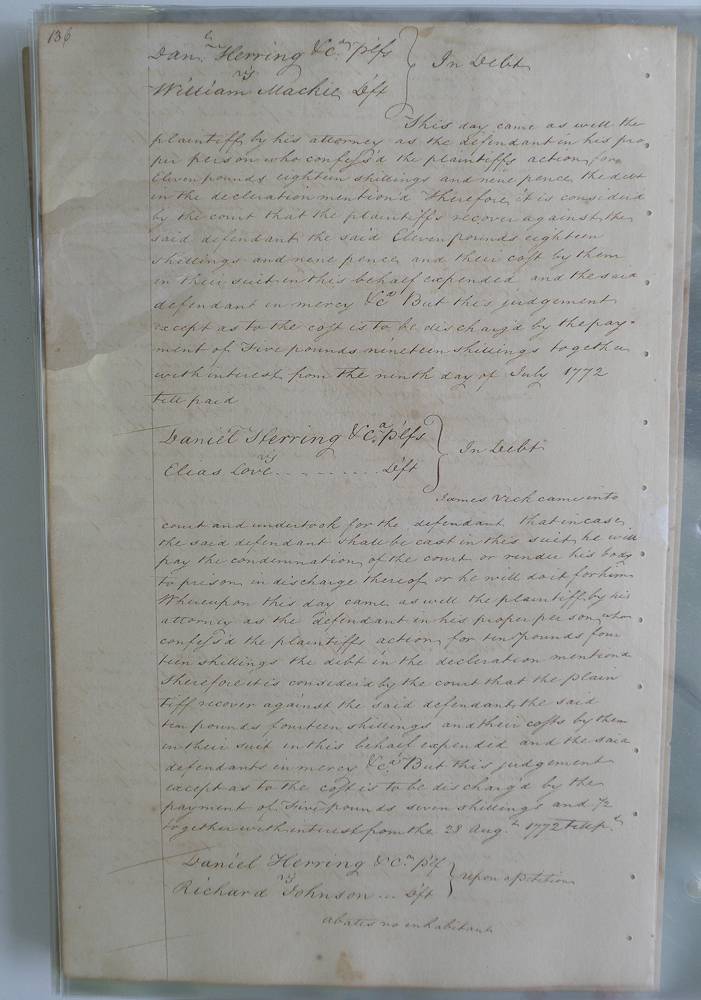 136
Dan.l Herring & C.a plfs } In Debt
vs
William Mackie Dft
This day came as well the
plaintiff by his attorney as the defendant in his pro
per person who confess'd the plaintiffs action for
Eleven pounds eighteen shillings and nine pence the debt
in the decleration mention'd Therefore it is considered
by the court that the plaintiff's recover against the
said defendant the said Eleven pounds eighteen
shillings and nine pence and their cost by them
in their suit in this behalf expended and the said
defendant in mercy &c.a But this judgement
except as to the cost is to be discharg'd by the pay=
ment of Five pounds nineteen shillings together
with interest from the ninth day of July 1772
till paid
Daniel Herring & C.a plfs } In Debt
vs
Elias Love .......... Dft
James Vick came into
court and undertook for the defendant that in case
the said defendant shall be cast in this suit he will
pay the condemnation of the court or render his body
to prison in discharge thereof or he will do it for him
Whereupon this day came as well the plaintiff by his
attorney as the defendant in his proper person who
confess'd the plaintiffs action for ten pounds four
teen shillings the debt in the decleration mention'd
Therefore it is consider'd by the court that the plain
tiff recover against the said defendant the said
ten pounds fourteen shillings and their costs by them
in their suit in this behalf expended and the said
defendants in mercy &c.a But this judgement
except as to the cost is to be discharg'd by the
payment of Five pounds seven shillings and 1/2
together with interest from the 28 Aug.t 1772 till p.d
Daniel Herring & C.a plf } upon a petition
vs
Richard Johnson ... Dft
abates no inhabitant